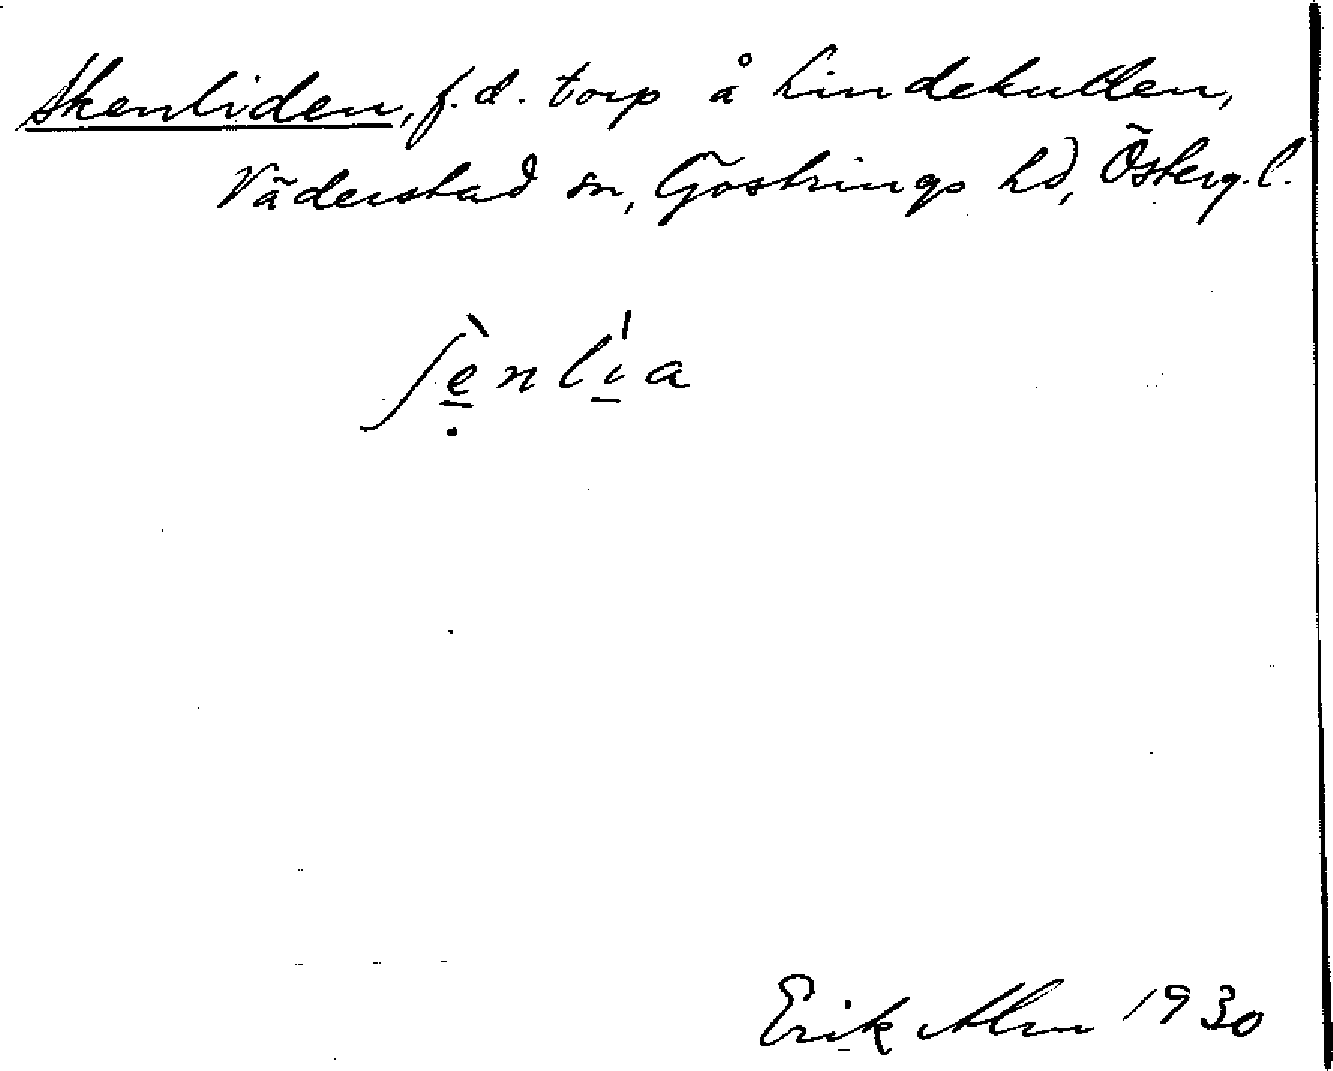 Skenliden, f.d. torp å Lindekullen,
Väderstad sn, Göstrings hd, Österg. l.
ʃè̱nlı̱́a
Erik Alm 1930